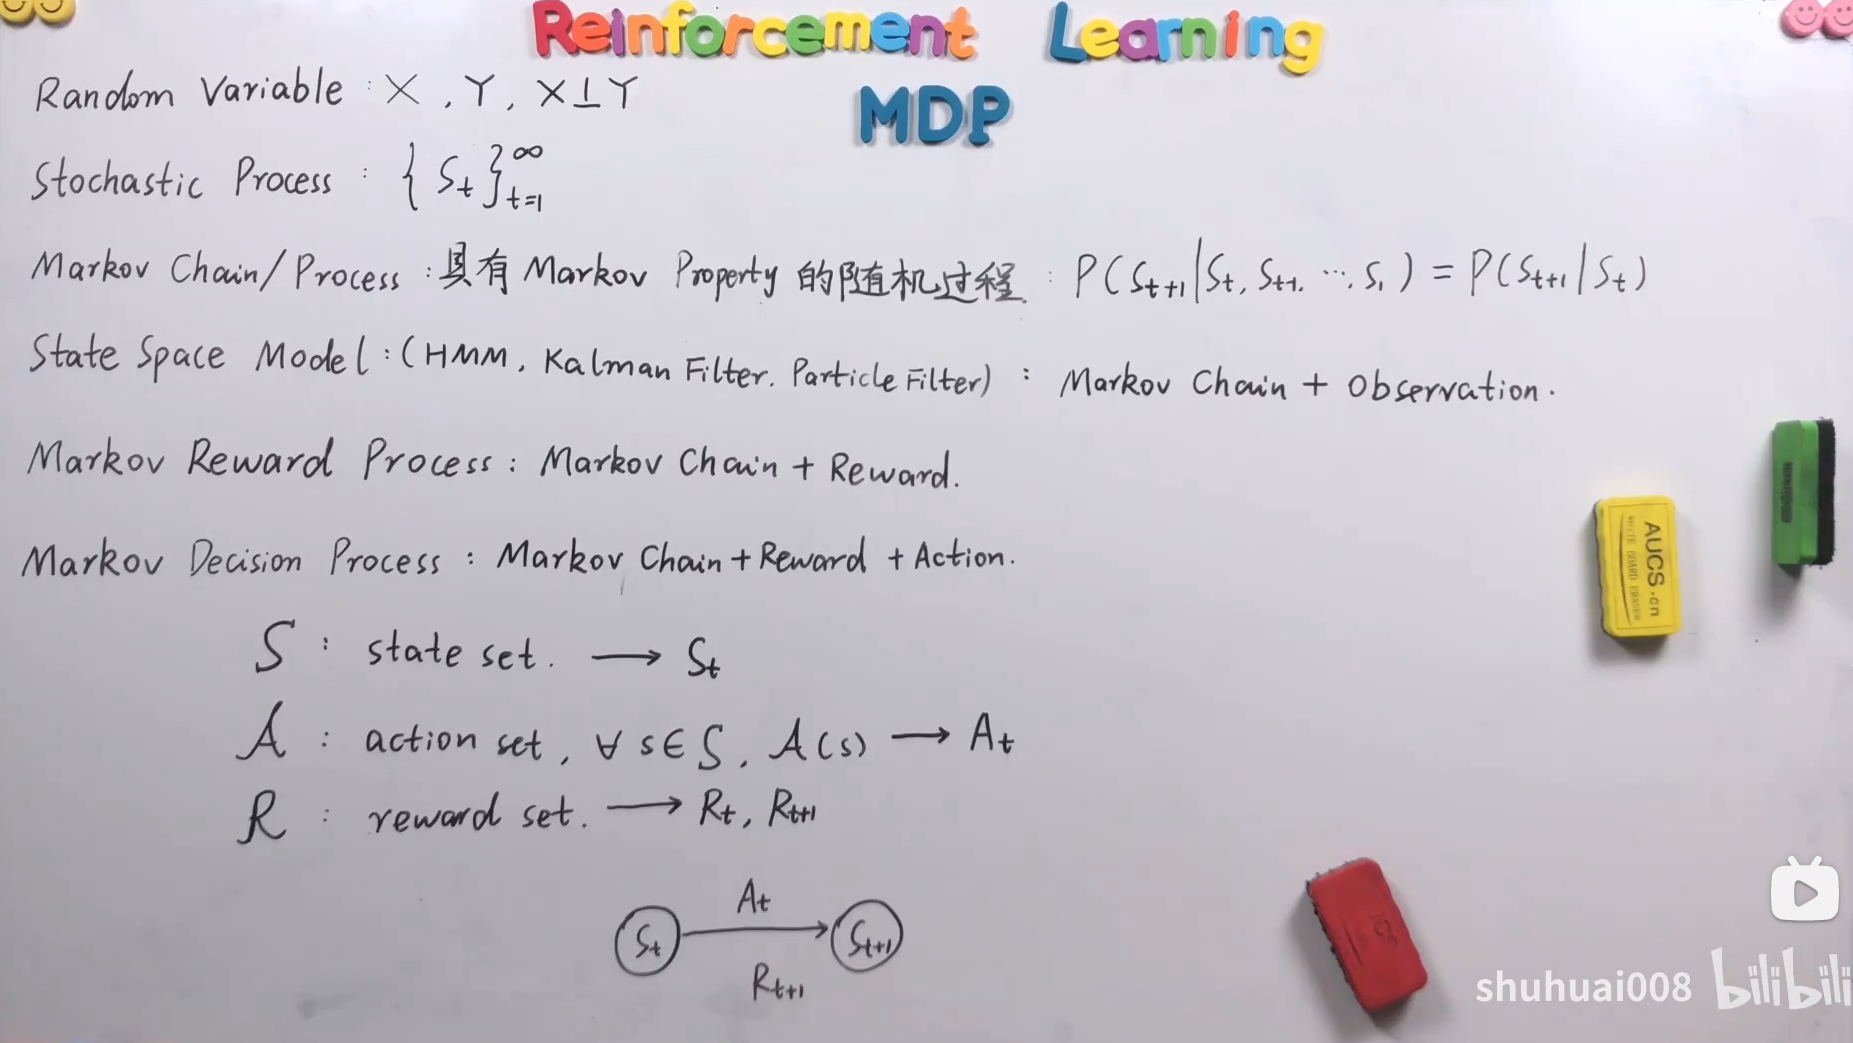 Reinforcement Learning
MDP
Random Variable : X, Y, X⊥Y
Stochastic Process : {St}∞t=1
Markov Chain/Process : 具有 Markov Property 的随机过程 : P(St+1|St, St-1, …, S1) = P(St+1|St)
State Space Model : (HMM, Kalman Filter. Particle Filter) : Markov Chain + Observation.
Markov Reward Process : Markov Chain + Reward.
Markov Decision Process : Markov Chain + Reward + Action.
S : state set. ⟶ St
A : action set, ∀ s∈S, A(s) ⟶ At
R : reward set. ⟶ Rt, Rt+1
At
St St+1
Rt+1
AUCS.cn
WHITE BOARD ERASER
shuhuai008 bilibili